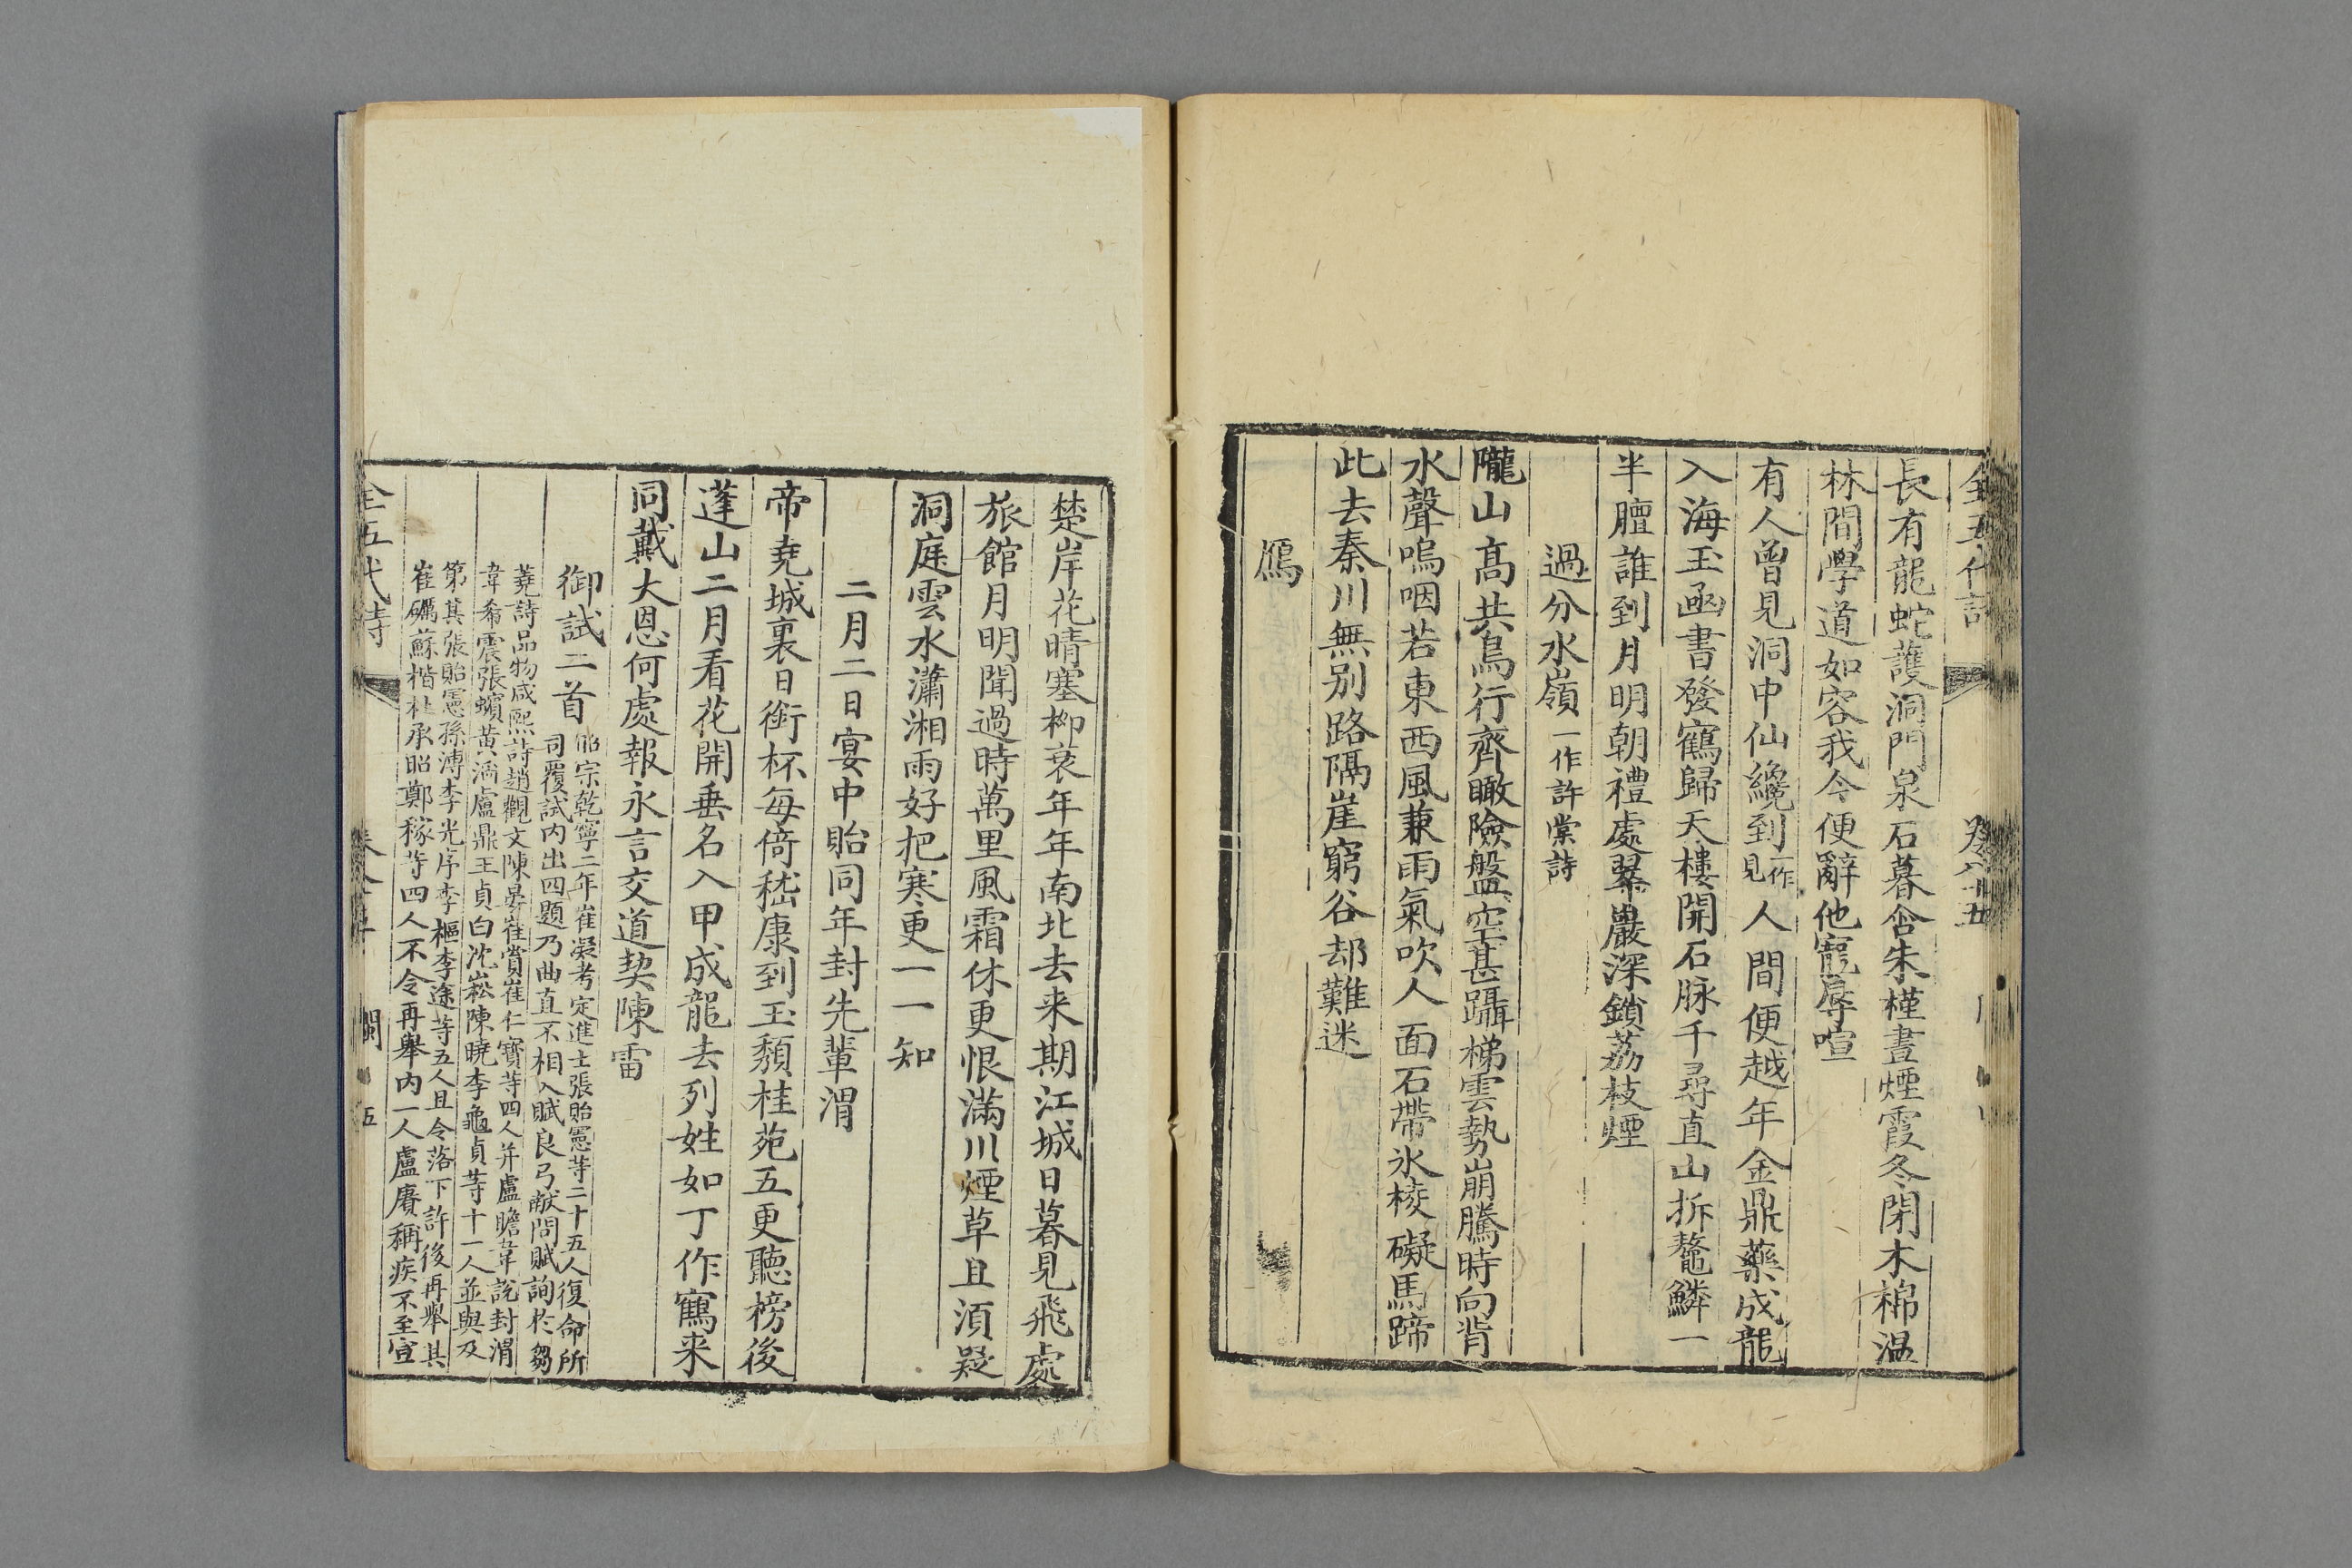 長有龍蛇護洞門泉石暮含朱槿晝煙霞冬閉木棉溫
林間學道如容我今便辭他寵辱喧
有人曾見洞中仙纔到一作見人間便越年金鼎藥成龍
入海玉函書發鶴歸天樓開石脉千尋直山拆鼇鱗一
半膻誰到月明朝禮處翠巖深鎖荔枝煙
過分水嶺一作許棠詩
隴山高共鳥行齊瞰險盤空甚躡梯雲勢崩騰時向背
水聲嗚咽若東西風兼雨氣吹人面石帶冰棱礙馬蹄
此去秦川無别路隔崖窮谷却難迷
鴈
楚岸花晴塞柳衰年年南北去来期江城日暮見飛處
旅館月明聞過時萬里風霜休更恨滿川煙草且須疑
洞庭雲水瀟湘雨好把寒更一一知
二月二日宴中貽同年封先輩渭
帝堯城裏日銜杯每倚嵇康到玉頹桂苑五更聽榜後
蓬山二月看花開垂名入甲成龍去列姓如丁作鶴来
同戴大恩何處報永言交道契陳雷
御試二首昭宗乾寧二年崔凝考定進士張貽憲等二十五人復命所
司覆試内出四題乃曲直不相入賦良弓獻問賦詢於芻
蕘詩品物咸熙詩趙觀文陳晏崔賞崔仁寶等四人并盧瞻韋說封渭
韋希震張蠙黄滔盧鼎王貞白沈崧陳曉李龜貞等十一人並與及
第其張貽憲孫溥李光序李樞李途等五人且令落下許後再舉其
崔礪蘇楷杜承昭鄭稼等四人不令再舉内一人盧賡稱疾不至宣
全五代詩 閩 五